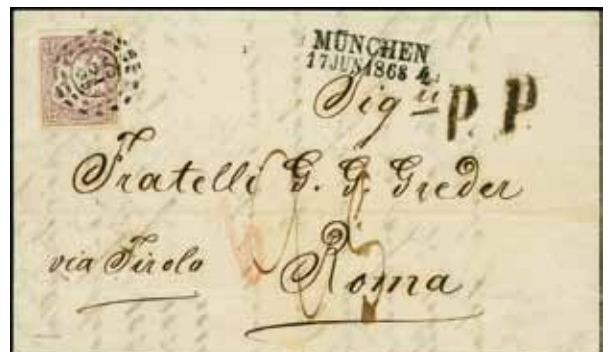 MÜNCHEN
17 JUN 1868 4
Sig ri P. P.
Fratelli G. G. Greder
via Tirolo
Roma